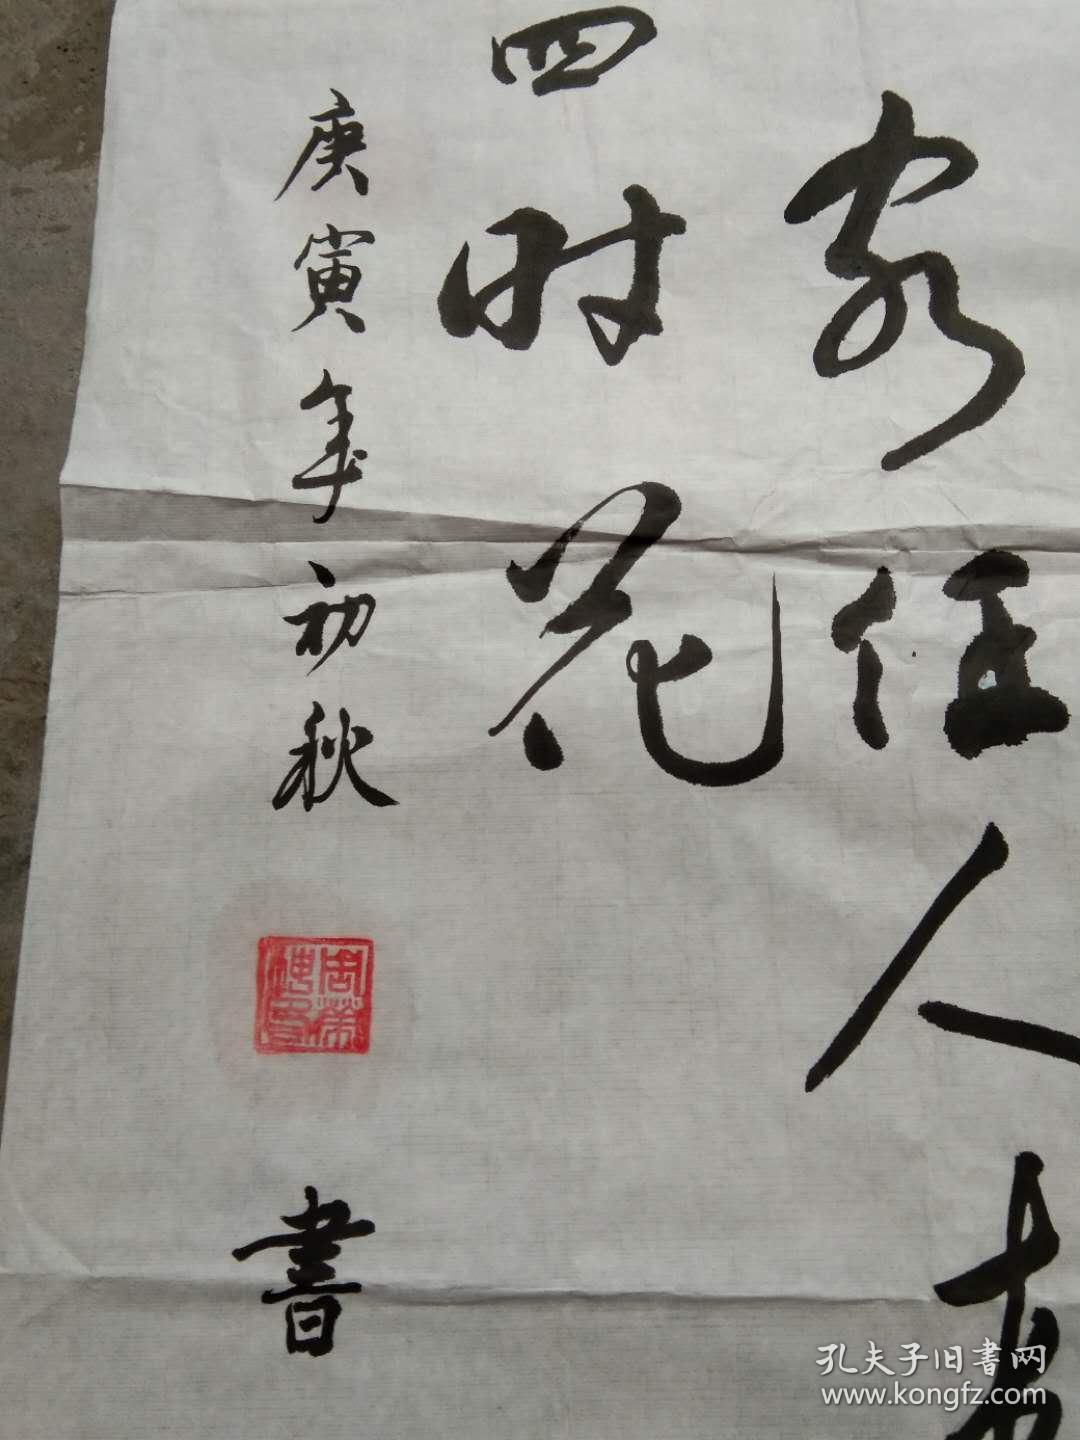 客任人
四时花
庚寅年初秋
書
孔夫子旧書网
www.kongfz.com